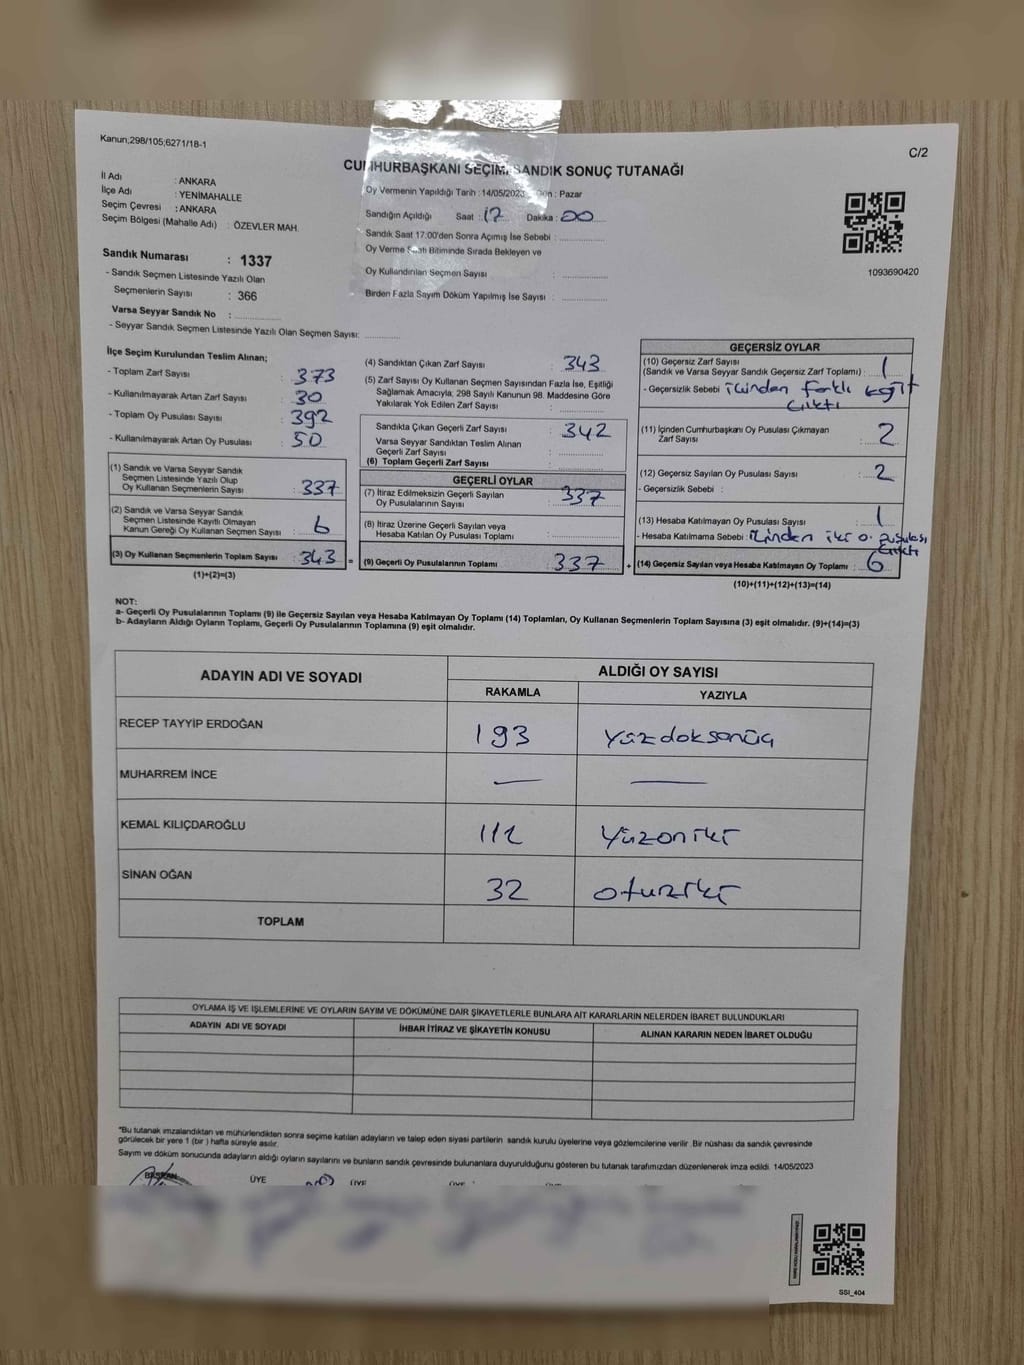 Kanun;298/105;6271/18-1
C/2
CUMHURBAŞKANI SEÇİMİ SANDIK SONUÇ TUTANAĞI
İl Adı : ANKARA
İlçe Adı : YENİMAHALLE
Seçim Çevresi : ANKARA
Seçim Bölgesi (Mahalle Adı) : ÖZEVLER MAH.
Oy Vermenin Yapıldığı Tarih : 14/05/2023 Gün : Pazar
Sandığın Açıldığı Saat : 17 Dakika : 00
Sandık Saat 17.00'den Sonra Açılmış İse Sebebi :
Oy Verme Saati Bitiminde Sırada Bekleyen ve
Oy Kullandırılan Seçmen Sayısı :
Birden Fazla Sayım Döküm Yapılmış İse Sayısı :
1093690420
Sandık Numarası : 1337
- Sandık Seçmen Listesinde Yazılı Olan
Seçmenlerin Sayısı : 366
Varsa Seyyar Sandık No :
- Seyyar Sandık Seçmen Listesinde Yazılı Olan Seçmen Sayısı:
İlçe Seçim Kurulundan Teslim Alınan;
- Toplam Zarf Sayısı : 373
- Kullanılmayarak Artan Zarf Sayısı : 30
- Toplam Oy Pusulası Sayısı : 392
- Kullanılmayarak Artan Oy Pusulası : 50
(1) Sandık ve Varsa Seyyar Sandık
Seçmen Listesinde Yazılı Olup
Oy Kullanan Seçmenlerin Sayısı : 337
(2) Sandık ve Varsa Seyyar Sandık
Seçmen Listesinde Kayıtlı Olmayan
Kanun Gereği Oy Kullanan Seçmen Sayısı : 6
(3) Oy Kullanan Seçmenlerin Toplam Sayısı : 343 =
(1)+(2)=(3)
(4) Sandıktan Çıkan Zarf Sayısı : 343
(5) Zarf Sayısı Oy Kullanan Seçmen Sayısından Fazla İse, Eşitliği
Sağlamak Amacıyla, 298 Sayılı Kanunun 98. Maddesine Göre
Yakılarak Yok Edilen Zarf Sayısı :
Sandıkta Çıkan Geçerli Zarf Sayısı : 342
Varsa Seyyar Sandıktan Teslim Alınan
Geçerli Zarf Sayısı :
(6) Toplam Geçerli Zarf Sayısı :
GEÇERLİ OYLAR
(7) İtiraz Edilmeksizin Geçerli Sayılan
Oy Pusulalarının Sayısı : 337
(8) İtiraz Üzerine Geçerli Sayılan veya
Hesaba Katılan Oy Pusulası Toplamı :
(9) Geçerli Oy Pusulalarının Toplamı : 337 +
GEÇERSİZ OYLAR
(10) Geçersiz Zarf Sayısı
(Sandık ve Varsa Seyyar Sandık Geçersiz Zarf Toplamı) : 1
- Geçersizlik Sebebi : içinden farklı kağıt
çıktı
(11) İçinden Cumhurbaşkanı Oy Pusulası Çıkmayan
Zarf Sayısı : 2
(12) Geçersiz Sayılan Oy Pusulası Sayısı : 2
- Geçersizlik Sebebi :
(13) Hesaba Katılmayan Oy Pusulası Sayısı : 1
- Hesaba Katılmama Sebebi : içinden iki o. pusulası
çıktı
(14) Geçersiz Sayılan veya Hesaba Katılmayan Oy Toplamı : 6
(10)+(11)+(12)+(13)=(14)
NOT:
a- Geçerli Oy Pusulalarının Toplamı (9) ile Geçersiz Sayılan veya Hesaba Katılmayan Oy Toplamı (14) Toplamları, Oy Kullanan Seçmenlerin Toplam Sayısına (3) eşit olmalıdır. (9)+(14)=(3)
b- Adayların Aldığı Oyların Toplamı, Geçerli Oy Pusulalarının Toplamına (9) eşit olmalıdır.
ADAYIN ADI VE SOYADI ALDIĞI OY SAYISI
RAKAMLA YAZIYLA
RECEP TAYYİP ERDOĞAN 193 yüzdoksanüç
MUHARREM İNCE — —
KEMAL KILIÇDAROĞLU 112 Yüzoniki
SİNAN OĞAN 32 otuziki
TOPLAM
OYLAMA İŞ VE İŞLEMLERİNE VE OYLARIN SAYIM VE DÖKÜMÜNE DAİR ŞİKAYETLERLE BUNLARA AİT KARARLARIN NELERDEN İBARET BULUNDUKLARI
ADAYIN ADI VE SOYADI İHBAR İTİRAZ VE ŞİKAYETİN KONUSU ALINAN KARARIN NEDEN İBARET OLDUĞU
*Bu tutanak imzalandıktan ve mühürlendikten sonra seçime katılan adayların ve talep eden siyasi partilerin sandık kurulu üyelerine veya gözlemcilerine verilir. Bir nüshası da sandık çevresinde
görülecek bir yere 1 (bir) hafta süreyle asılır.
Sayım ve döküm sonucunda adayların aldığı oyların sayılarını ve bunların sandık çevresinde bulunanlara duyurulduğunu gösteren bu tutanak tarafımızdan düzenlenerek imza edildi. 14/05/2023
BAŞKAN ÜYE ÜYE ÜYE ÜYE
SSI_404